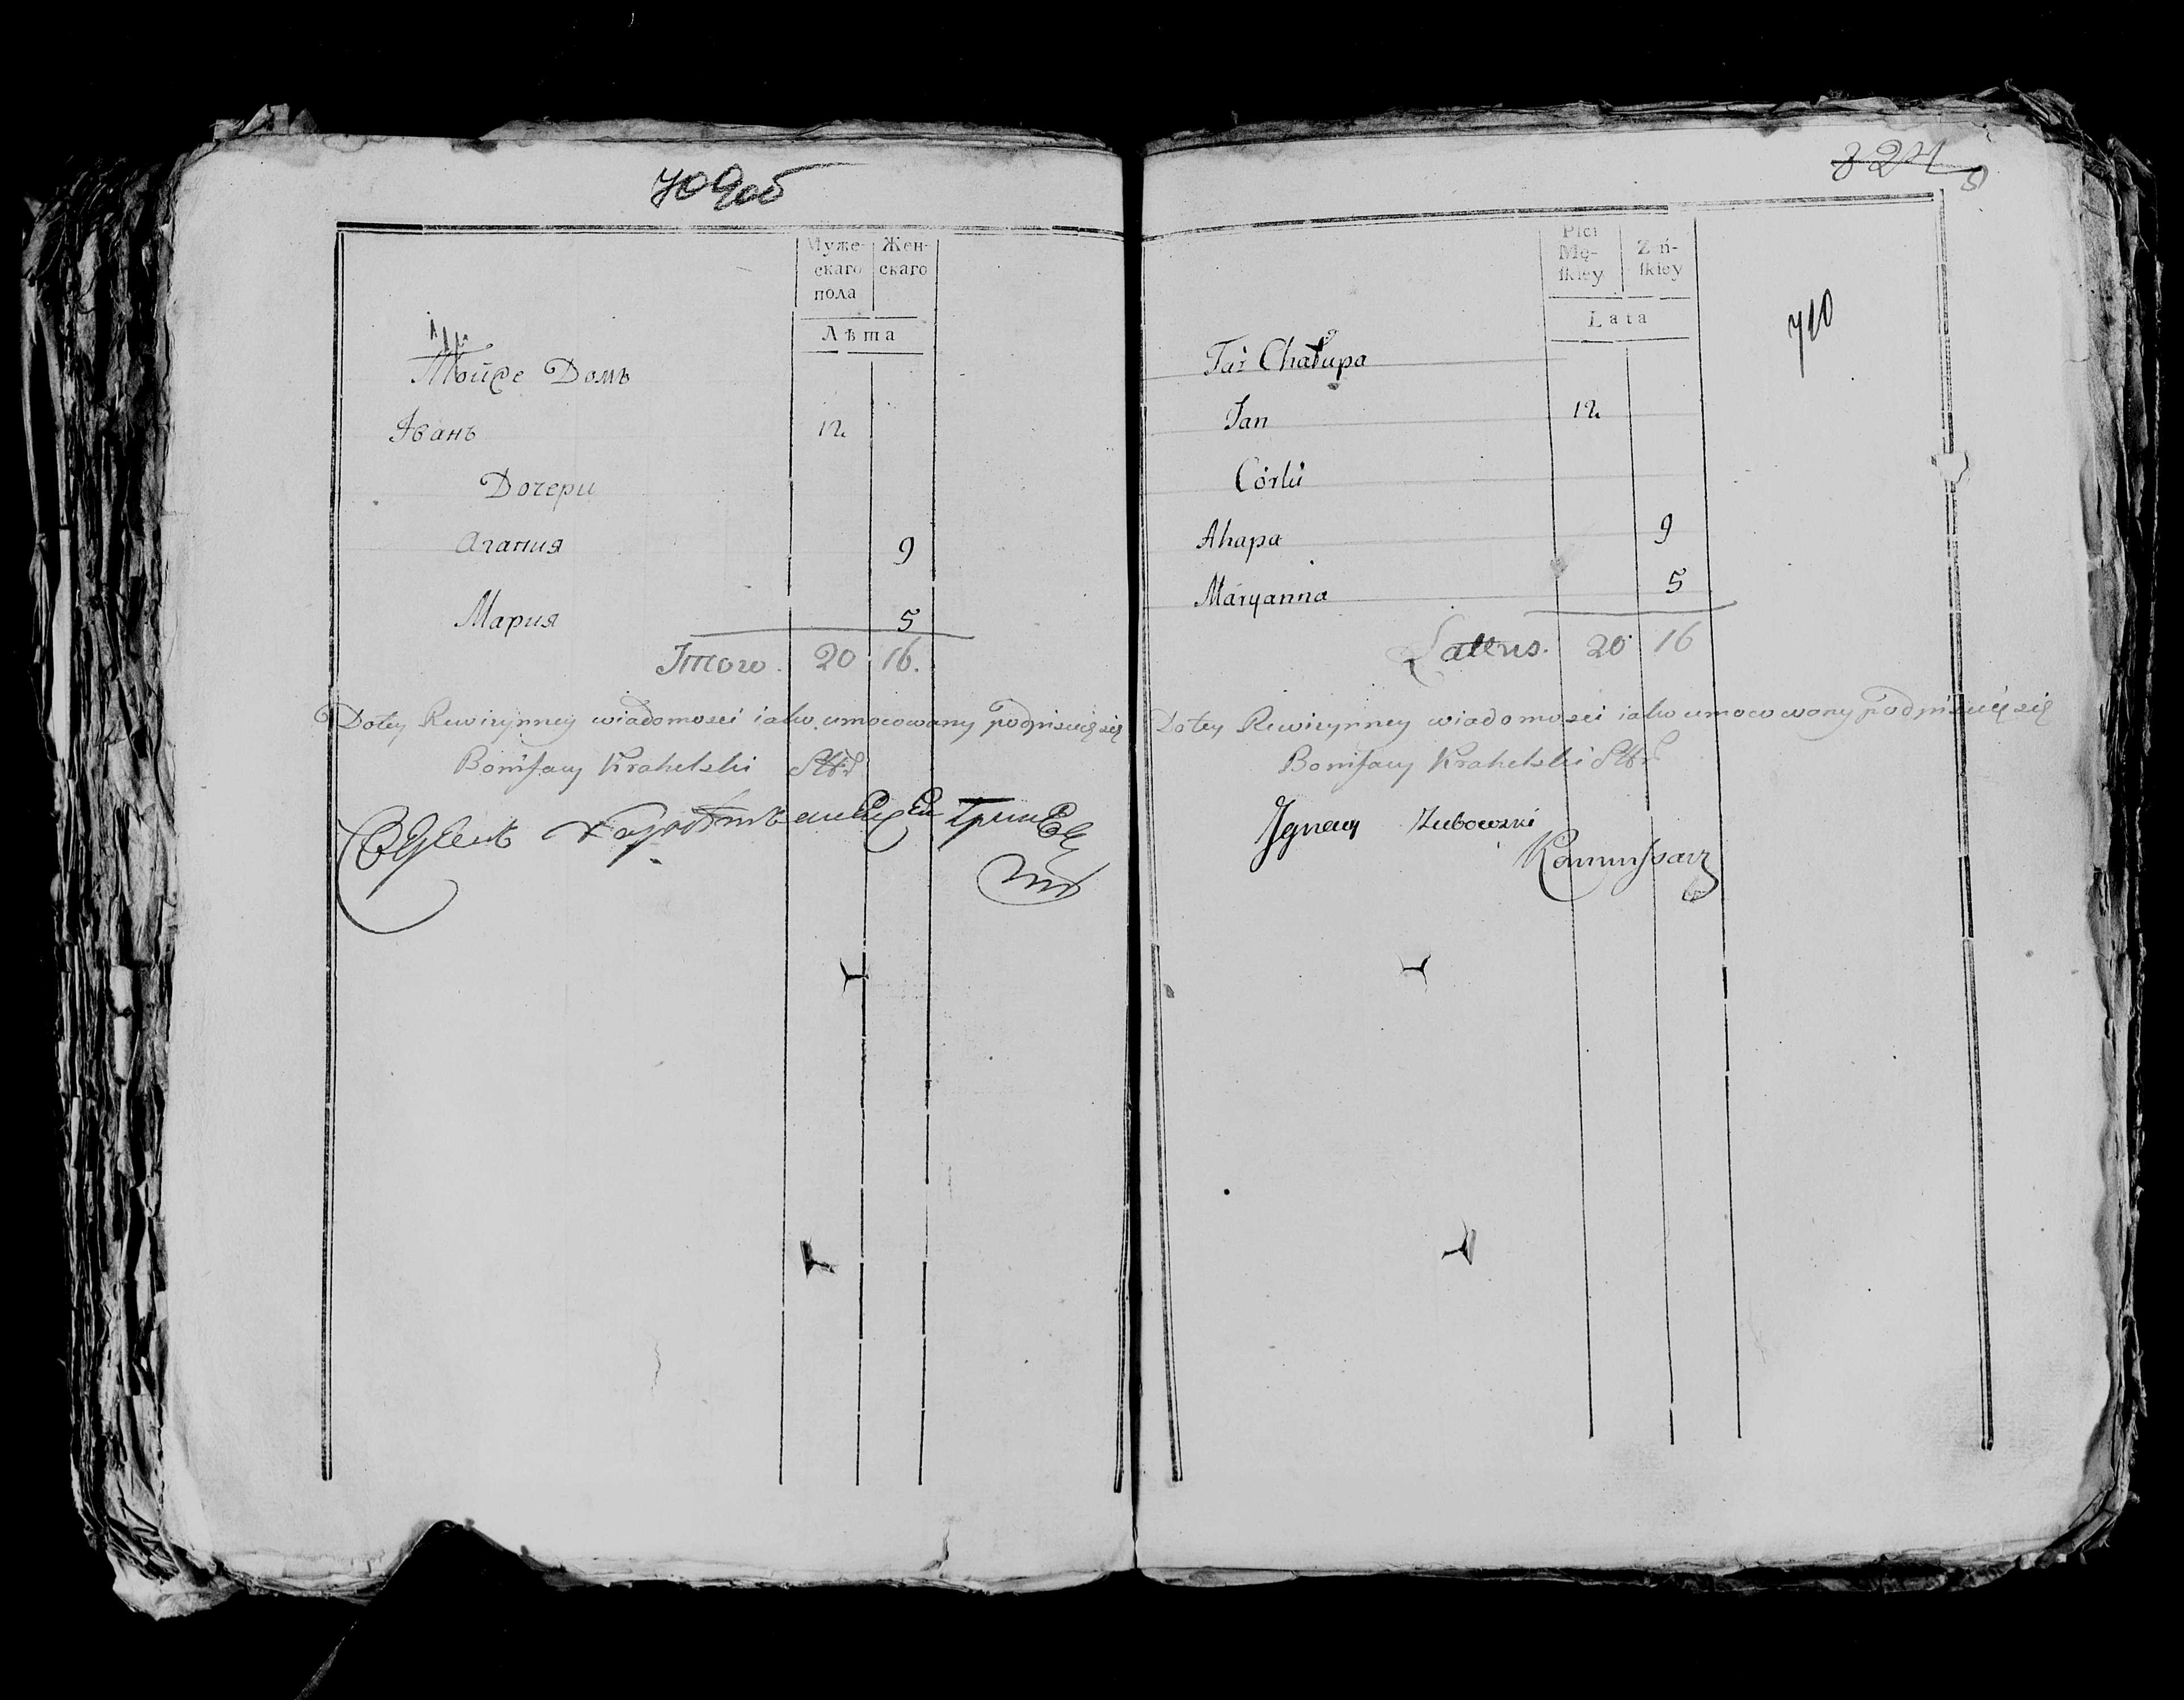 709об
Муже-
скаго
пола
Жен-
скаго
Лѣта
Тойже Домъ
Іванъ 12
Дочери
Агапия 9
Мария 5
Ітого. 20 16.
Do tey Rewizynney wiadomosci iako umocowany podpisuię się
Bonifacy Krahelski
324
5
Płci
Mę-
ſkiey
Zeń-
ſkiey
Lata
710
Taż Chałupa
Jan 12
Córki
Ahapa 9
Maryanna 5
Latteris. 20 16
Do tey Rewizynney wiadomosci iako umocowany podpisuię się
Bonifacy Krahelski
Ignacy Zubowski
Kommissarz